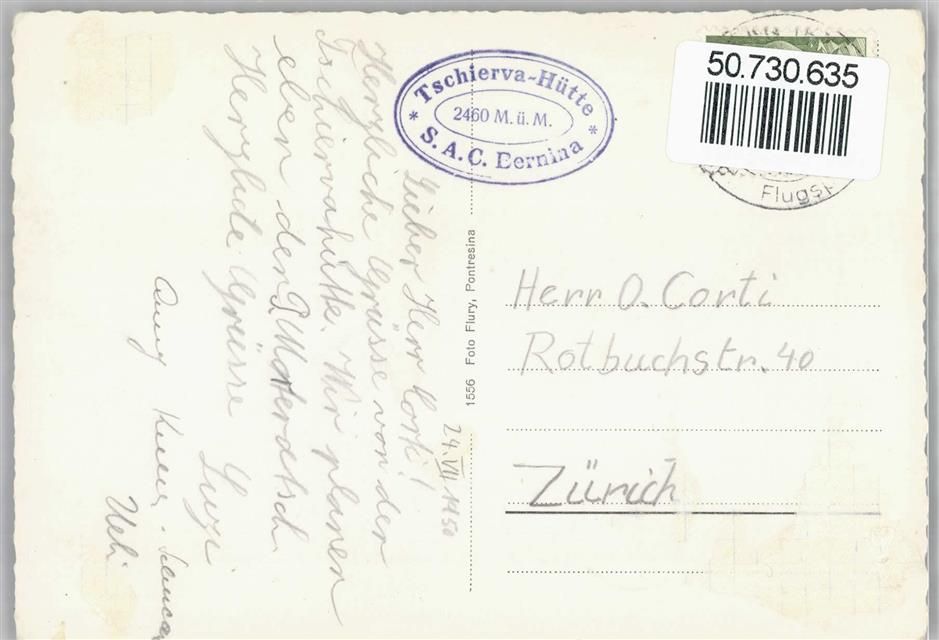 Tschierva-Hütte
2460 M. ü. M.
* S. A. C. Bernina *
50.730.635
Flugsp
24. VII 1950
Lieber Herr Corti!
Herzliche Grüsse von der
Tschiervahütte. Wir planen
eben den P. Morteratsch.
Herzliche Grüsse Luzi
Ueli
1556 Foto Flury, Pontresina
Herr O. Corti
Rotbuchstr. 40
Zürich